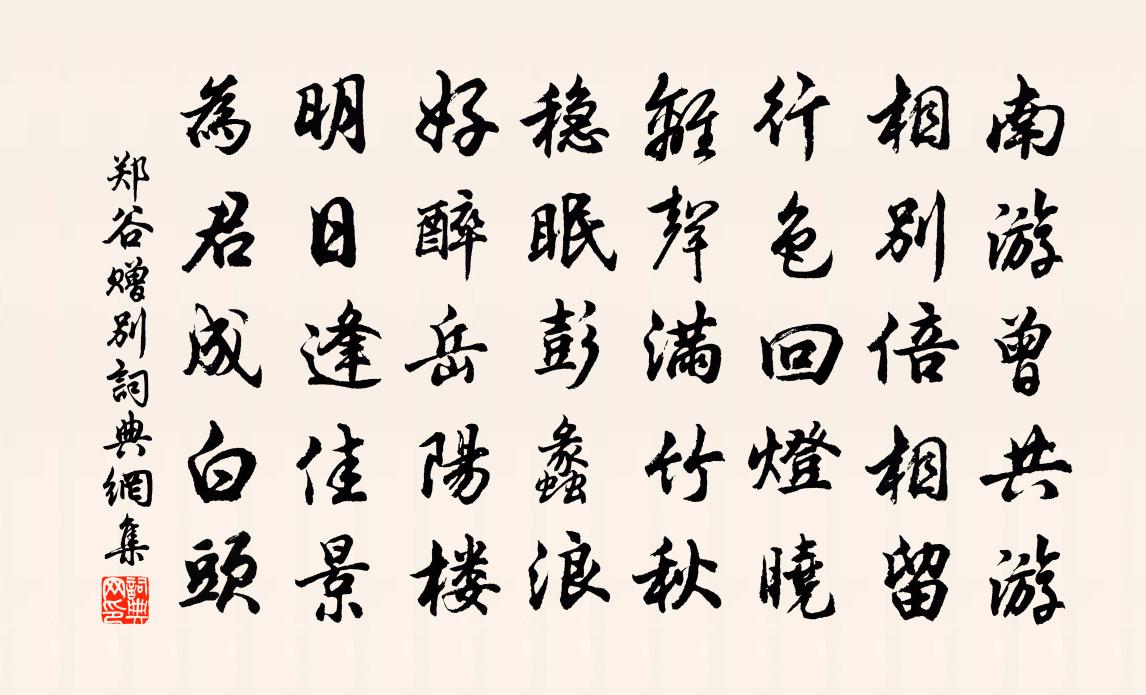 南游曾共游
相别倍相留
行色回燈曉
離聲满竹秋
穏眠彭蠡浪
好醉岳陽楼
明日逢佳景
為君成白頭
郑谷赠别詞典網集
詞典网印